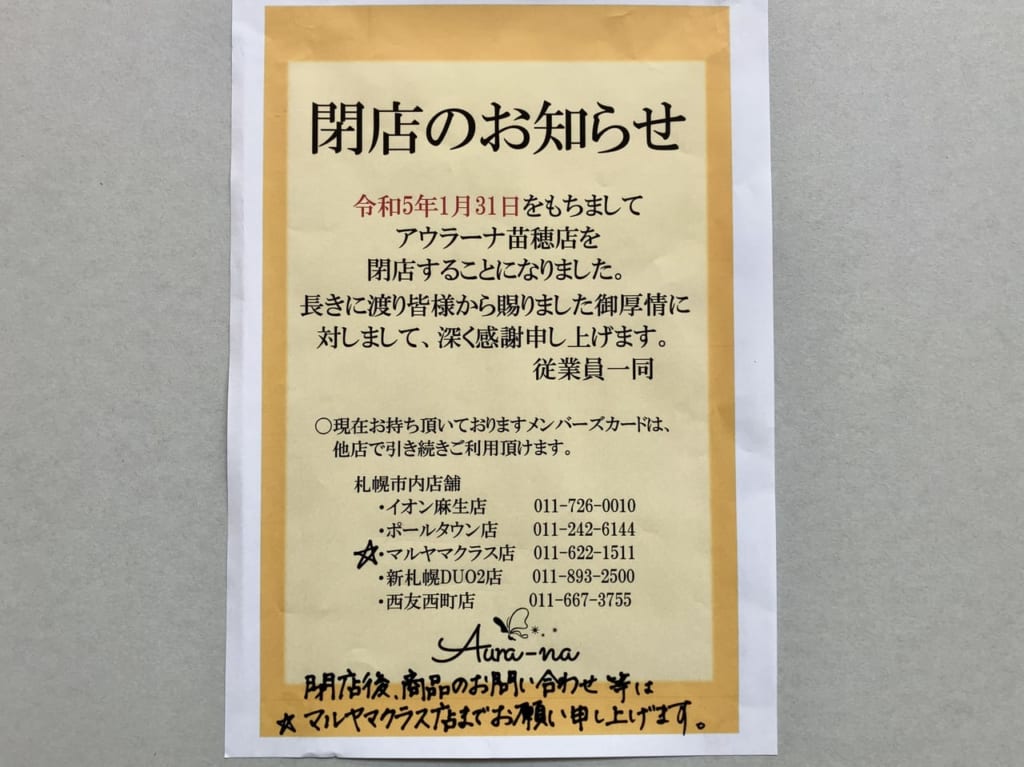 閉店のお知らせ
令和5年1月31日をもちまして
アウラーナ苗穂店を
閉店することになりました。
長きに渡り皆様から賜りました御厚情に
対しまして、深く感謝申し上げます。
従業員一同
○現在お持ち頂いておりますメンバーズカードは、
他店で引き続きご利用頂けます。
札幌市内店舗
・イオン麻生店 011-726-0010
・ポールタウン店 011-242-6144
☆・マルヤマクラス店 011-622-1511
・新札幌DUO2店 011-893-2500
・西友西町店 011-667-3755
Aura-na
閉店後、商品のお問い合わせ等は
☆マルヤマクラス店までお願い申し上げます。